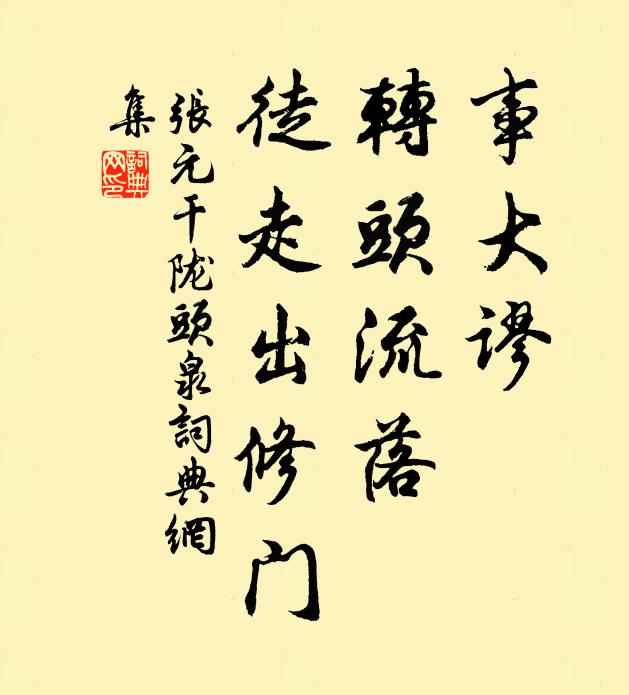 事大謬
轉頭流落
徒走出修门
張元干陇頭泉詞典網
集
詞典
网印